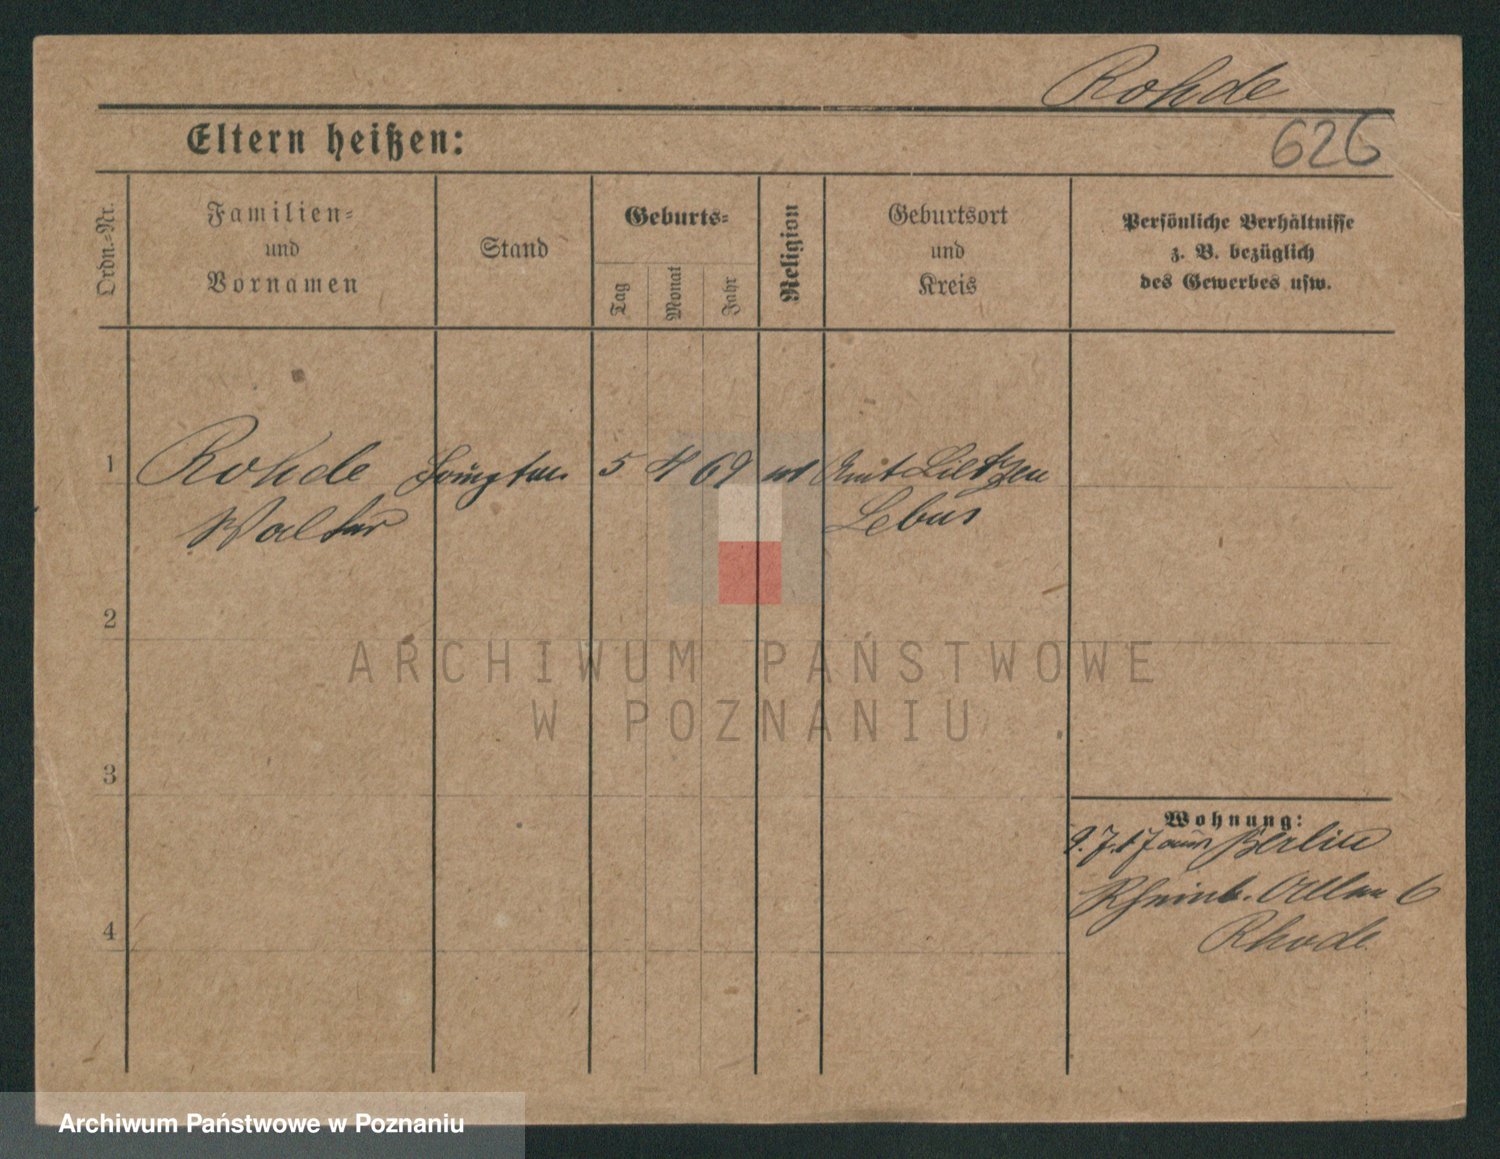 Rohde
626
Eltern heißen:
Ordn.-Nr.
Familien-
und
Vornamen
Stand
Geburts-
Tag
Monat
Jahr
Religion
Geburtsort
und
Kreis
Persönliche Verhältnisse
z. B. bezüglich
des Gewerbes usw.
1
Rohde
5 4 69
Amt Lietzen
Walter
Lebus
2
ARCHIWUM PAŃSTWOWE
W POZNANIU
3
Wohnung:
Berlin
4
6
Rhode
Archiwum Państwowe w Poznaniu